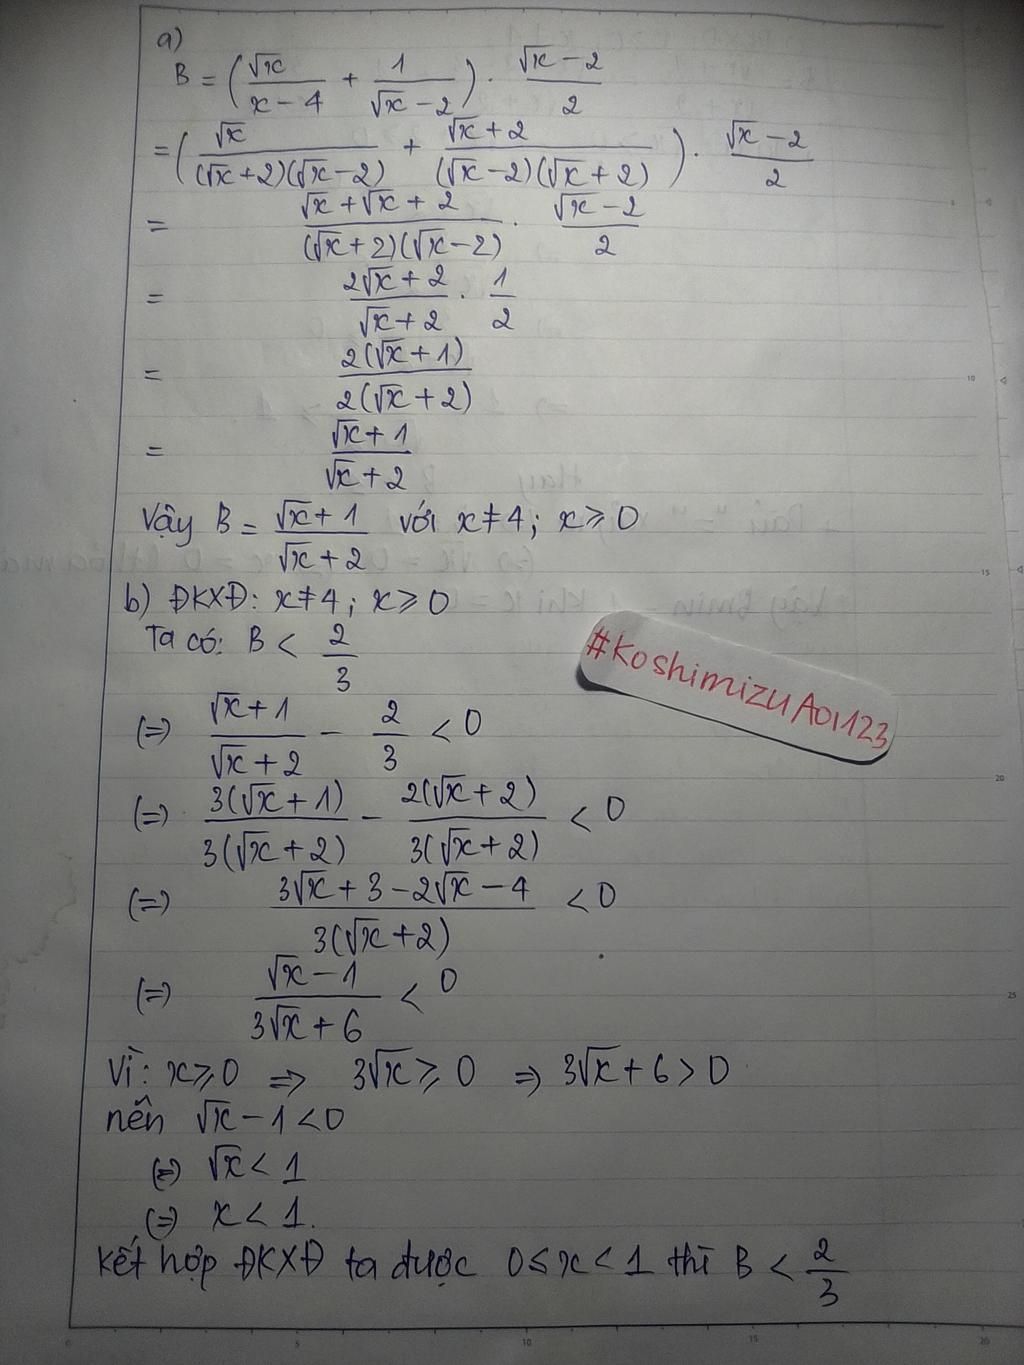 a)
B = (√x/(x-4) + 1/(√x-2)) · (√x-2)/2
= (√x/((√x+2)(√x-2)) + (√x+2)/((√x-2)(√x+2))) · (√x-2)/2
= (√x+√x+2)/((√x+2)(√x-2)) · (√x-2)/2
= (2√x+2)/(√x+2) · 1/2
= 2(√x+1)/2(√x+2)
= (√x+1)/(√x+2)
Vậy B = (√x+1)/(√x+2) với x≠4; x⩾0
b) ĐKXĐ: x≠4; x⩾0
Ta có: B < 2/3
(=) (√x+1)/(√x+2) - 2/3 < 0
(=) 3(√x+1)/3(√x+2) - 2(√x+2)/3(√x+2) < 0
(=) (3√x+3-2√x-4)/3(√x+2) < 0
(=) (√x-1)/(3√x+6) < 0
Vì: x⩾0 => 3√x⩾0 => 3√x+6>0
nên √x-1<0
(=) √x<1
(=) x<1.
Kết hợp ĐKXĐ ta được 0≤x<1 thì B < 2/3
#KoshimizuAoi123